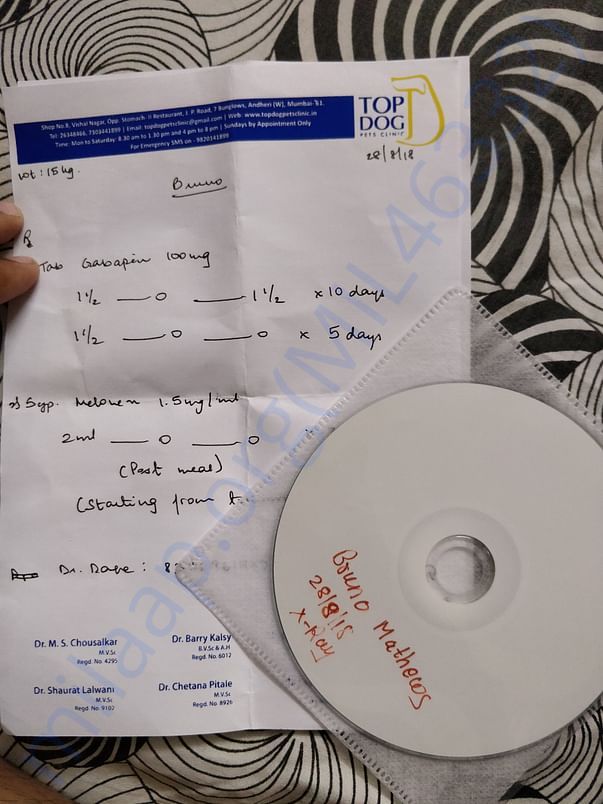 Shop No.8, Vishal Nagar, Opp. Stomach. II Restaurant, J. P. Road, 7 Bunglows, Andheri (W), Mumbai-
Tel: 26348466, 7303441899 | Email: topdogpetsclinic@gmail.com | Web: www.topdogpetsclinic.in
Time: Mon to Saturday: 8.30 am to 1.30 pm and 4 pm to 8 pm | Sundays by Appointment Only
For Emergency SMS on - 9820141899
TOP
DOG
PETS CLINIC
28/8/18
wt: 15 kg.
Bruno
Tab Gabapin 100mg
1 1/2 — 0 — 1 1/2 x 10 days
1 1/2 — 0 — 0 x 5 days
Syp. Melonex 1.5mg/ml
2ml — 0 — 0
(Post meal)
(Starting from
Dr. :
Dr. M. S. Chousalkar
M.V.Sc
Regd. No. 4295
Dr. Barry Kalsy
B.V.Sc & A.H
Regd. No. 6012
Dr. Shaurat Lalwani
M.V.Sc
Regd. No. 9102
Dr. Chetana Pitale
M.V.Sc
Regd. No. 8926
Bruno Mathews
28/8/18
X-Ray
milaap.org(MIL463322)